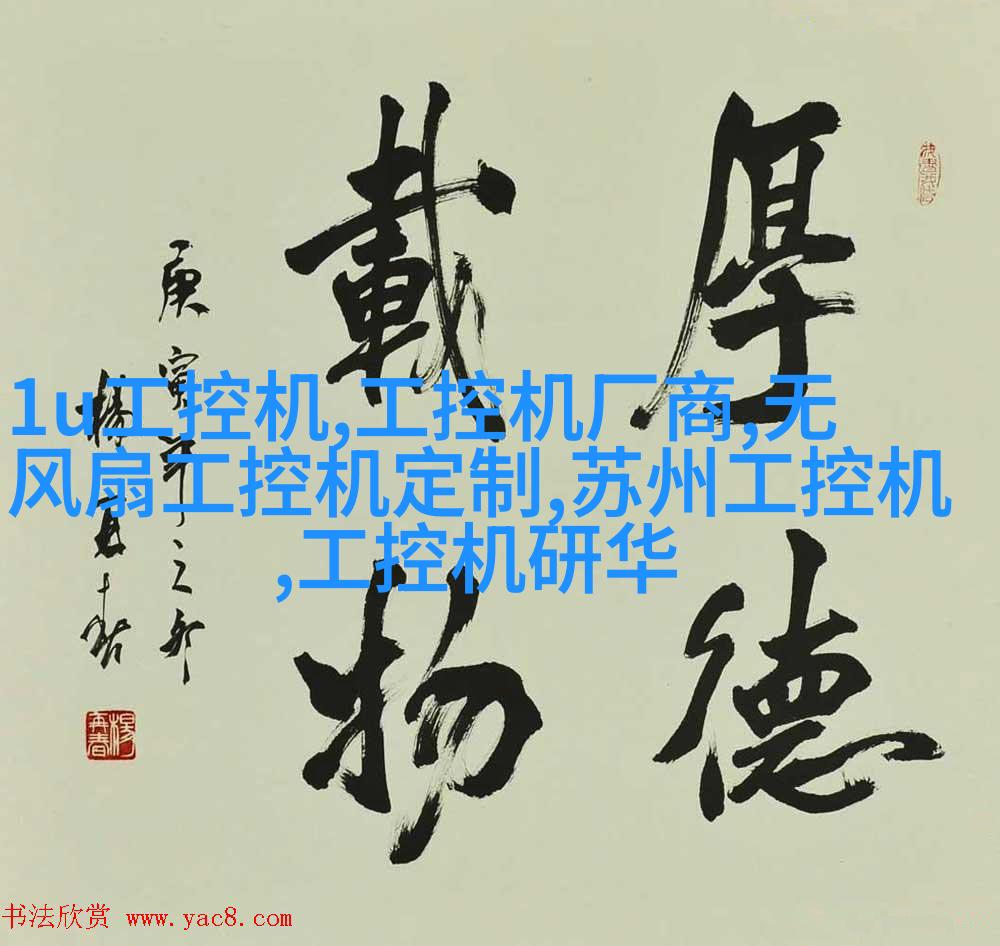 厚德
載物
庚寅
楊再春
楊再春
1u工控机,工控机厂商,无
风扇工控机定制,苏州工控机
,工控机研华
书法欣赏 www.yac8.com